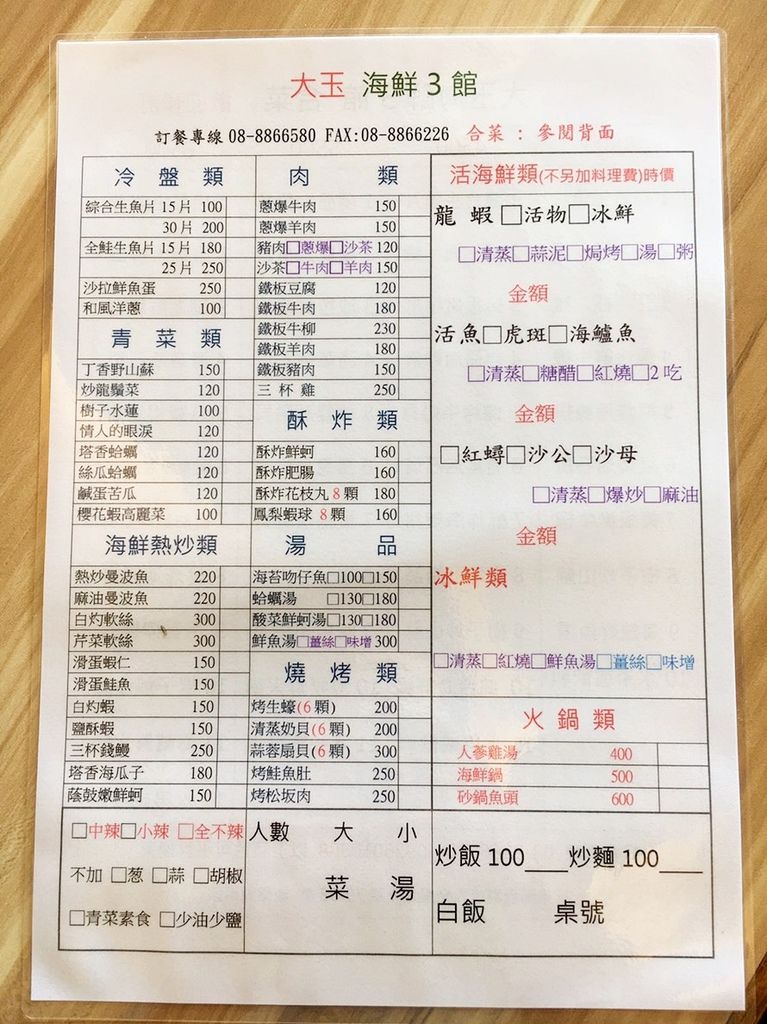 大玉 海鮮 3 館
訂餐專線 08-8866580 FAX:08-8866226 合菜 : 參閱背面
冷 盤 類
綜合生魚片 15 片 100
30 片 200
全鮭生魚片 15 片 180
25 片 250
沙拉鮮魚蛋 250
和風洋蔥 100
青 菜 類
丁香野山蘇 150
炒龍鬚菜 120
樹子水蓮 100
情人的眼淚 120
塔香蛤蠣 120
絲瓜蛤蠣 120
鹹蛋苦瓜 120
櫻花蝦高麗菜 100
海鮮熱炒類
熱炒曼波魚 220
麻油曼波魚 220
白灼軟絲 300
芹菜軟絲 300
滑蛋蝦仁 150
滑蛋鮭魚 150
白灼蝦 150
鹽酥蝦 150
三杯錢鰻 250
塔香海瓜子 180
蔭鼓嫩鮮蚵 150
肉 類
蔥爆牛肉 150
蔥爆羊肉 150
豬肉□蔥爆□沙茶 120
沙茶□牛肉□羊肉 150
鐵板豆腐 120
鐵板牛肉 180
鐵板牛柳 230
鐵板羊肉 180
鐵板豬肉 150
三 杯 雞 250
酥 炸 類
酥炸鮮蚵 160
酥炸肥腸 160
酥炸花枝丸 8 顆 180
鳳梨蝦球 8 顆 160
湯 品
海苔吻仔魚□100□150
蛤蠣湯 □130□180
酸菜鮮蚵湯□130□180
鮮魚湯□薑絲□味增 300
燒 烤 類
烤生蠔(6 顆) 200
清蒸奶貝(6 顆) 200
蒜蓉扇貝(6 顆) 300
烤鮭魚肚 250
烤松坂肉 250
活海鮮類(不另加料理費)時價
龍 蝦 □活物□冰鮮
□清蒸□蒜泥□焗烤□湯□粥
金額
活魚□虎斑□海鱸魚
□清蒸□糖醋□紅燒□2 吃
金額
□紅蟳□沙公□沙母
□清蒸□爆炒□麻油
金額
冰鮮類
□清蒸□紅燒□鮮魚湯□薑絲□味增
火 鍋 類
人蔘雞湯 400
海鮮鍋 500
砂鍋魚頭 600
□中辣□小辣 □全不辣
不加 □葱 □蒜 □胡椒
□青菜素食 □少油少鹽
人數 大 小
菜 湯
炒飯 100___炒麵 100___
白飯 桌號